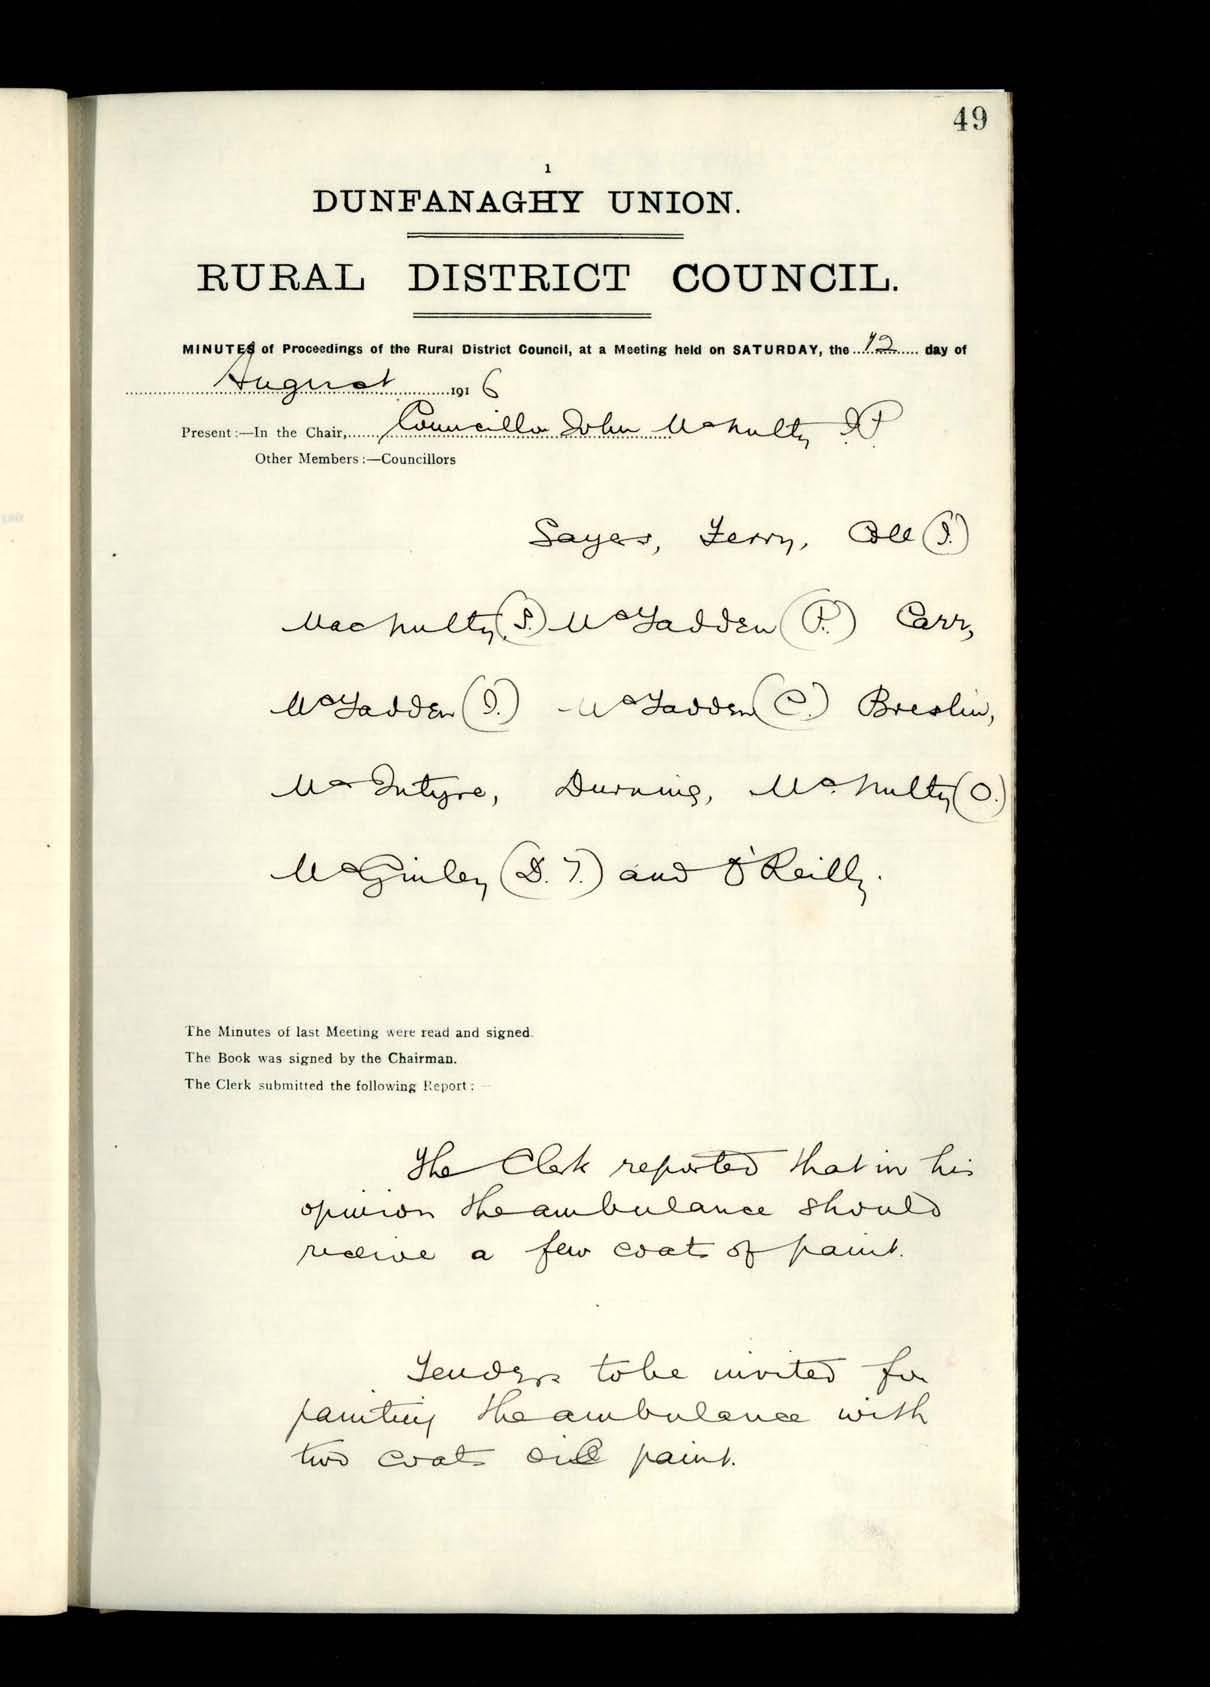 49
1
DUNFANAGHY UNION.
RURAL DISTRICT COUNCIL.
MINUTES of Proceedings of the Rural District Council, at a Meeting held on SATURDAY, the 12 day of
August 1916
Present:—In the Chair, Councillor John McNulty J.P.
Other Members:—Councillors
Sayers, Ferry, Coll (J.)
MacNulty, (J.) McFadden (P.) Carr,
McFadden (J.) McFadden (C.) Breslin,
McIntyre, Durning, McNulty (O.)
McGinley (D. T.) and O'Reilly.
The Minutes of last Meeting were read and signed.
The Book was signed by the Chairman.
The Clerk submitted the following Report:—
The Clerk reported that in his
opinion the ambulance should
receive a few coats of paint.
Tenders to be invited for
painting the ambulance with
two coats oil paint.